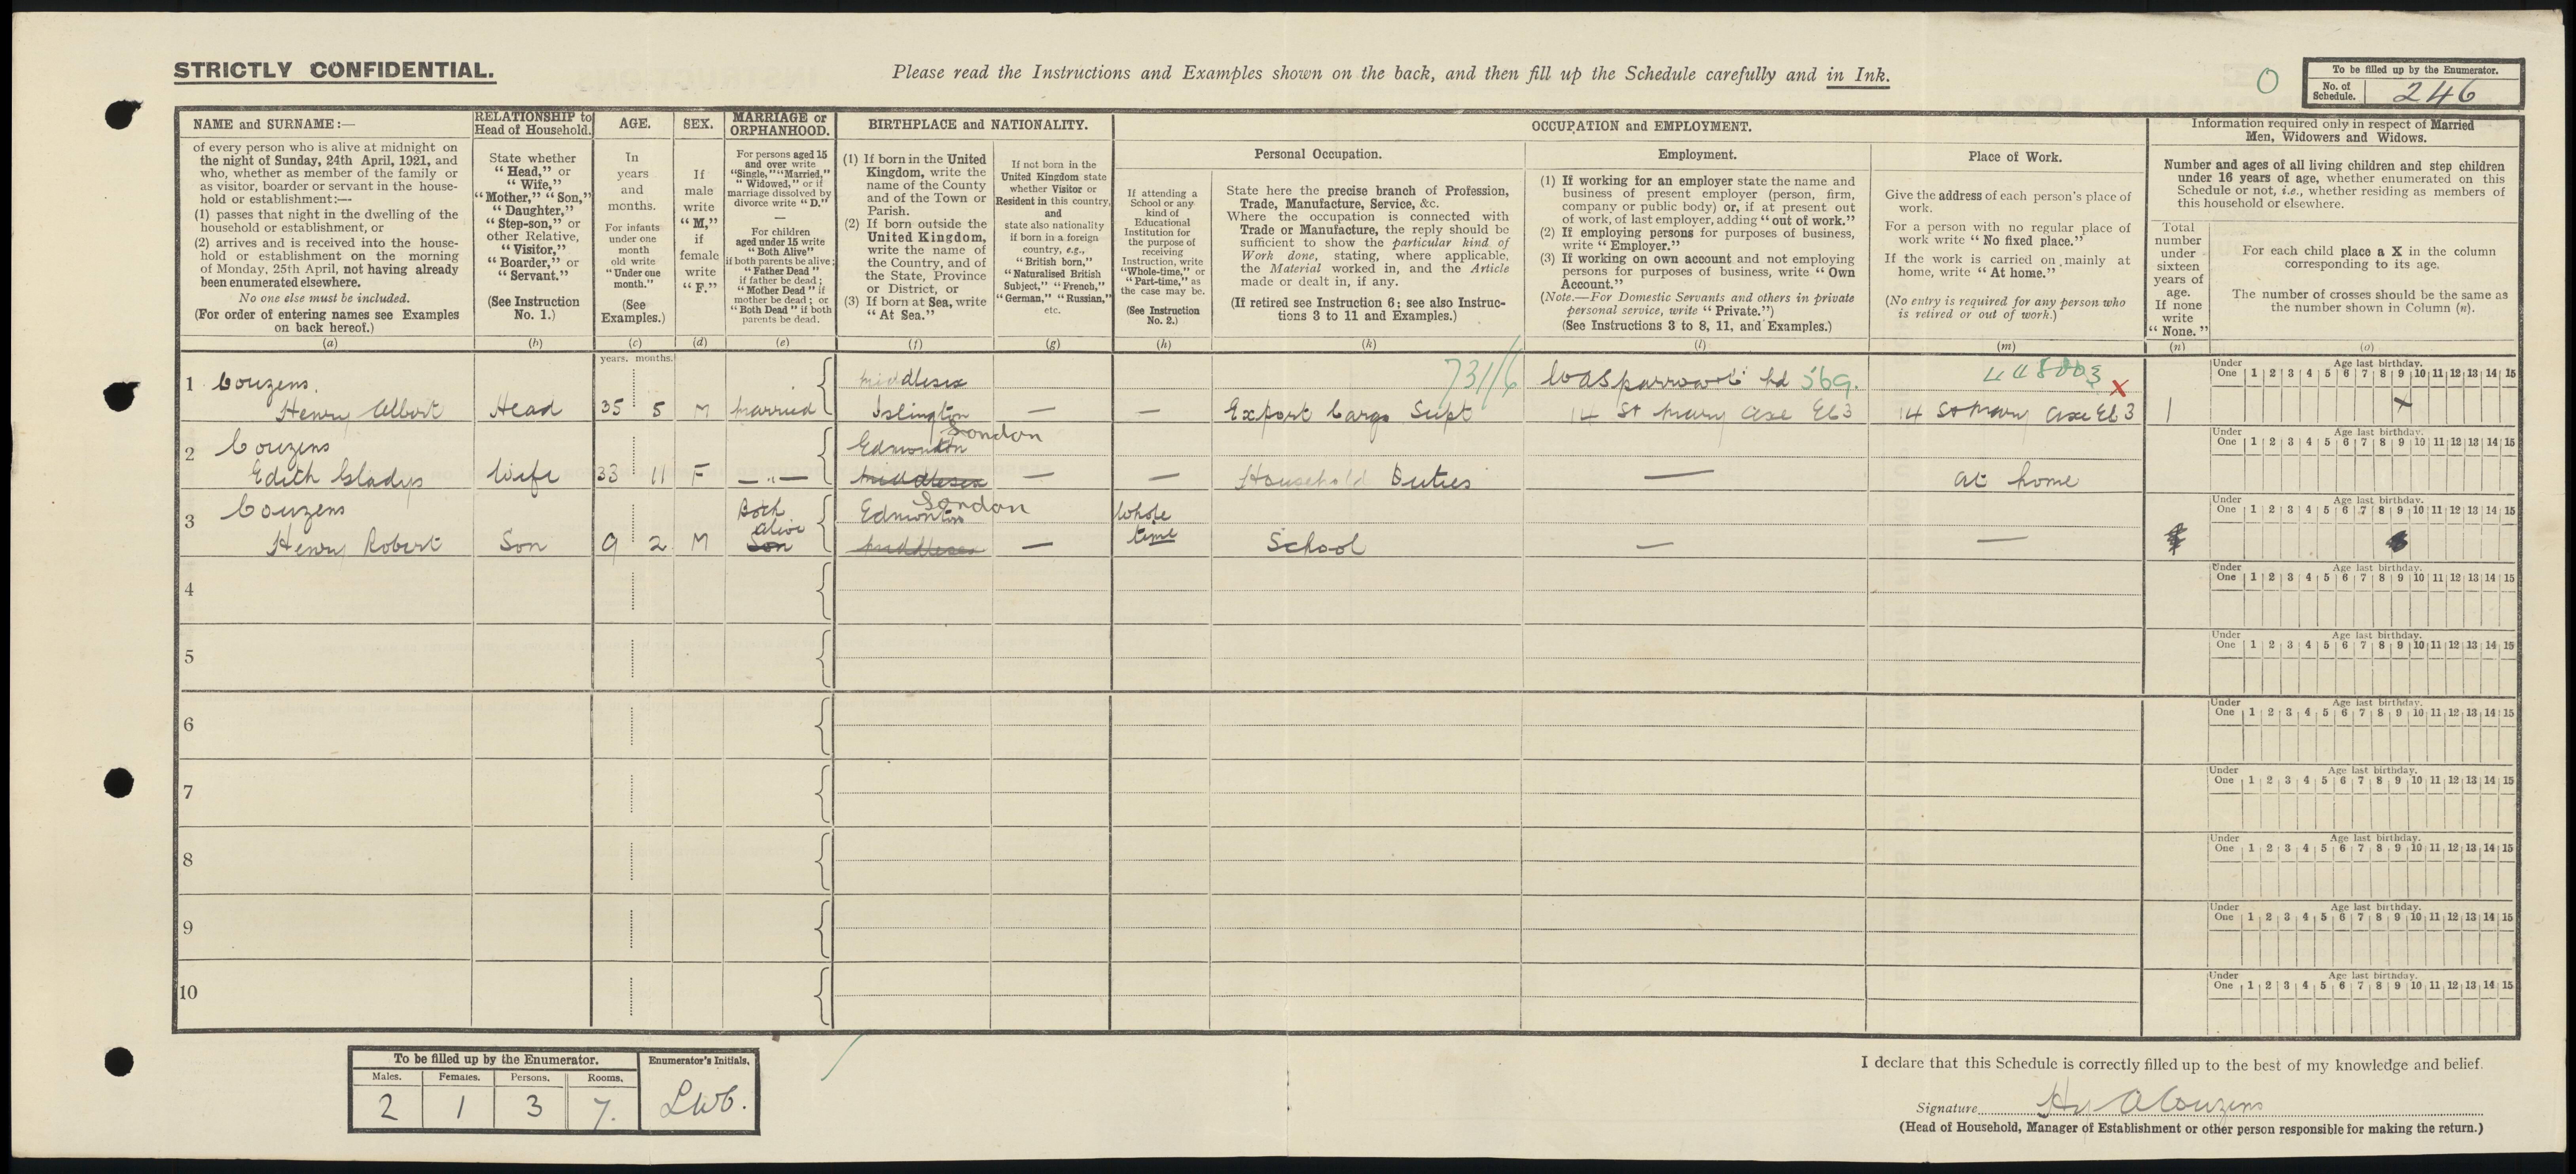 STRICTLY CONFIDENTIAL.
Please read the Instructions and Examples shown on the back, and then fill up the Schedule carefully and in Ink.
O
To be filled up by the Enumerator.
No. of Schedule.
246
NAME and SURNAME:—
of every person who is alive at midnight on
the night of Sunday, 24th April, 1921, and
who, whether as member of the family or
as visitor, boarder or servant in the house-
hold or establishment:—
(1) passes that night in the dwelling of the
household or establishment, or
(2) arrives and is received into the house-
hold or establishment on the morning
of Monday, 25th April, not having already
been enumerated elsewhere.
No one else must be included.
(For order of entering names see Examples
on back hereof.)
(a)
RELATIONSHIP to
Head of Household.
State whether
"Head," or
"Wife,"
"Mother," "Son,"
"Daughter,"
"Step-son," or
other Relative,
"Visitor,"
"Boarder," or
"Servant."
(See Instruction
No. 1.)
(b)
AGE.
In
years
and
months.
For infants
under one
month
old write
"Under one
month."
(See
Examples.)
(c)
SEX.
If
male
write
"M,"
if
female
write
"F."
(d)
MARRIAGE or
ORPHANHOOD.
For persons aged 15
and over write
"Single," "Married,"
"Widowed," or if
marriage dissolved by
divorce write "D."
—
For children
aged under 15 write
"Both Alive"
if both parents be alive;
"Father Dead"
if father be dead;
"Mother Dead" if
mother be dead; or
"Both Dead" if both
parents be dead.
(e)
BIRTHPLACE and NATIONALITY.
(1) If born in the United
Kingdom, write the
name of the County
and of the Town or
Parish.
(2) If born outside the
United Kingdom,
write the name of
the Country, and of
the State, Province
or District, or
(3) If born at Sea, write
"At Sea."
(f)
If not born in the
United Kingdom state
whether Visitor or
Resident in this country,
and
state also nationality
if born in a foreign
country, e.g.,
"British born,"
"Naturalised British
Subject," "French,"
"German," "Russian,"
etc.
(g)
OCCUPATION and EMPLOYMENT.
Personal Occupation.
If attending a
School or any
kind of
Educational
Institution for
the purpose of
receiving
Instruction, write
"Whole-time," or
"Part-time," as
the case may be.
(See Instruction
No. 2.)
(h)
State here the precise branch of Profession,
Trade, Manufacture, Service, &c.
Where the occupation is connected with
Trade or Manufacture, the reply should be
sufficient to show the particular kind of
Work done, stating, where applicable,
the Material worked in, and the Article
made or dealt in, if any.
(If retired see Instruction 6; see also Instruc-
tions 3 to 11 and Examples.)
(k)
Employment.
(1) If working for an employer state the name and
business of present employer (person, firm,
company or public body) or, if at present out
of work, of last employer, adding "out of work."
(2) If employing persons for purposes of business,
write "Employer."
(3) If working on own account and not employing
persons for purposes of business, write "Own
Account."
(Note.—For Domestic Servants and others in private
personal service, write "Private.")
(See Instructions 3 to 8, 11, and Examples.)
(l)
Place of Work.
Give the address of each person's place of
work.
For a person with no regular place of
work write "No fixed place."
If the work is carried on mainly at
home, write "At home."
(No entry is required for any person who
is retired or out of work.)
(m)
Information required only in respect of Married
Men, Widowers and Widows.
Number and ages of all living children and step children
under 16 years of age, whether enumerated on this
Schedule or not, i.e., whether residing as members of
this household or elsewhere.
Total
number
under
sixteen
years of
age.
If none
write
"None."
(n)
For each child place a X in the column
corresponding to its age.
The number of crosses should be the same as
the number shown in Column (n).
(o)
years. months.
Under One Age last birthday. 1 2 3 4 5 6 7 8 9 10 11 12 13 14 15
1 Couzens. Middlesex 731/6 569. 448003 X
Henry Albert Head 35 5 M Married Islington — — Export Cargo Supt 14 St Mary Axe EC3 14 St Mary Axe EC3 1 X
Under One Age last birthday. 1 2 3 4 5 6 7 8 9 10 11 12 13 14 15
2 Couzens Edmonton London
Edith Gladys Wife 33 11 F —"— Middlesex — — Household Duties — at home
Under One Age last birthday. 1 2 3 4 5 6 7 8 9 10 11 12 13 14 15
3 Couzens Both alive Edmonton London Whole time
Henry Robert Son 9 2 M Son Middlesex — School — —
4 Under One Age last birthday. 1 2 3 4 5 6 7 8 9 10 11 12 13 14 15
5 Under One Age last birthday. 1 2 3 4 5 6 7 8 9 10 11 12 13 14 15
6 Under One Age last birthday. 1 2 3 4 5 6 7 8 9 10 11 12 13 14 15
7 Under One Age last birthday. 1 2 3 4 5 6 7 8 9 10 11 12 13 14 15
8 Under One Age last birthday. 1 2 3 4 5 6 7 8 9 10 11 12 13 14 15
9 Under One Age last birthday. 1 2 3 4 5 6 7 8 9 10 11 12 13 14 15
10 Under One Age last birthday. 1 2 3 4 5 6 7 8 9 10 11 12 13 14 15
To be filled up by the Enumerator.
Males. Females. Persons. Rooms.
2 1 3 7.
Enumerator's Initials.
I declare that this Schedule is correctly filled up to the best of my knowledge and belief.
Signature Hy A Couzens
(Head of Household, Manager of Establishment or other person responsible for making the return.)